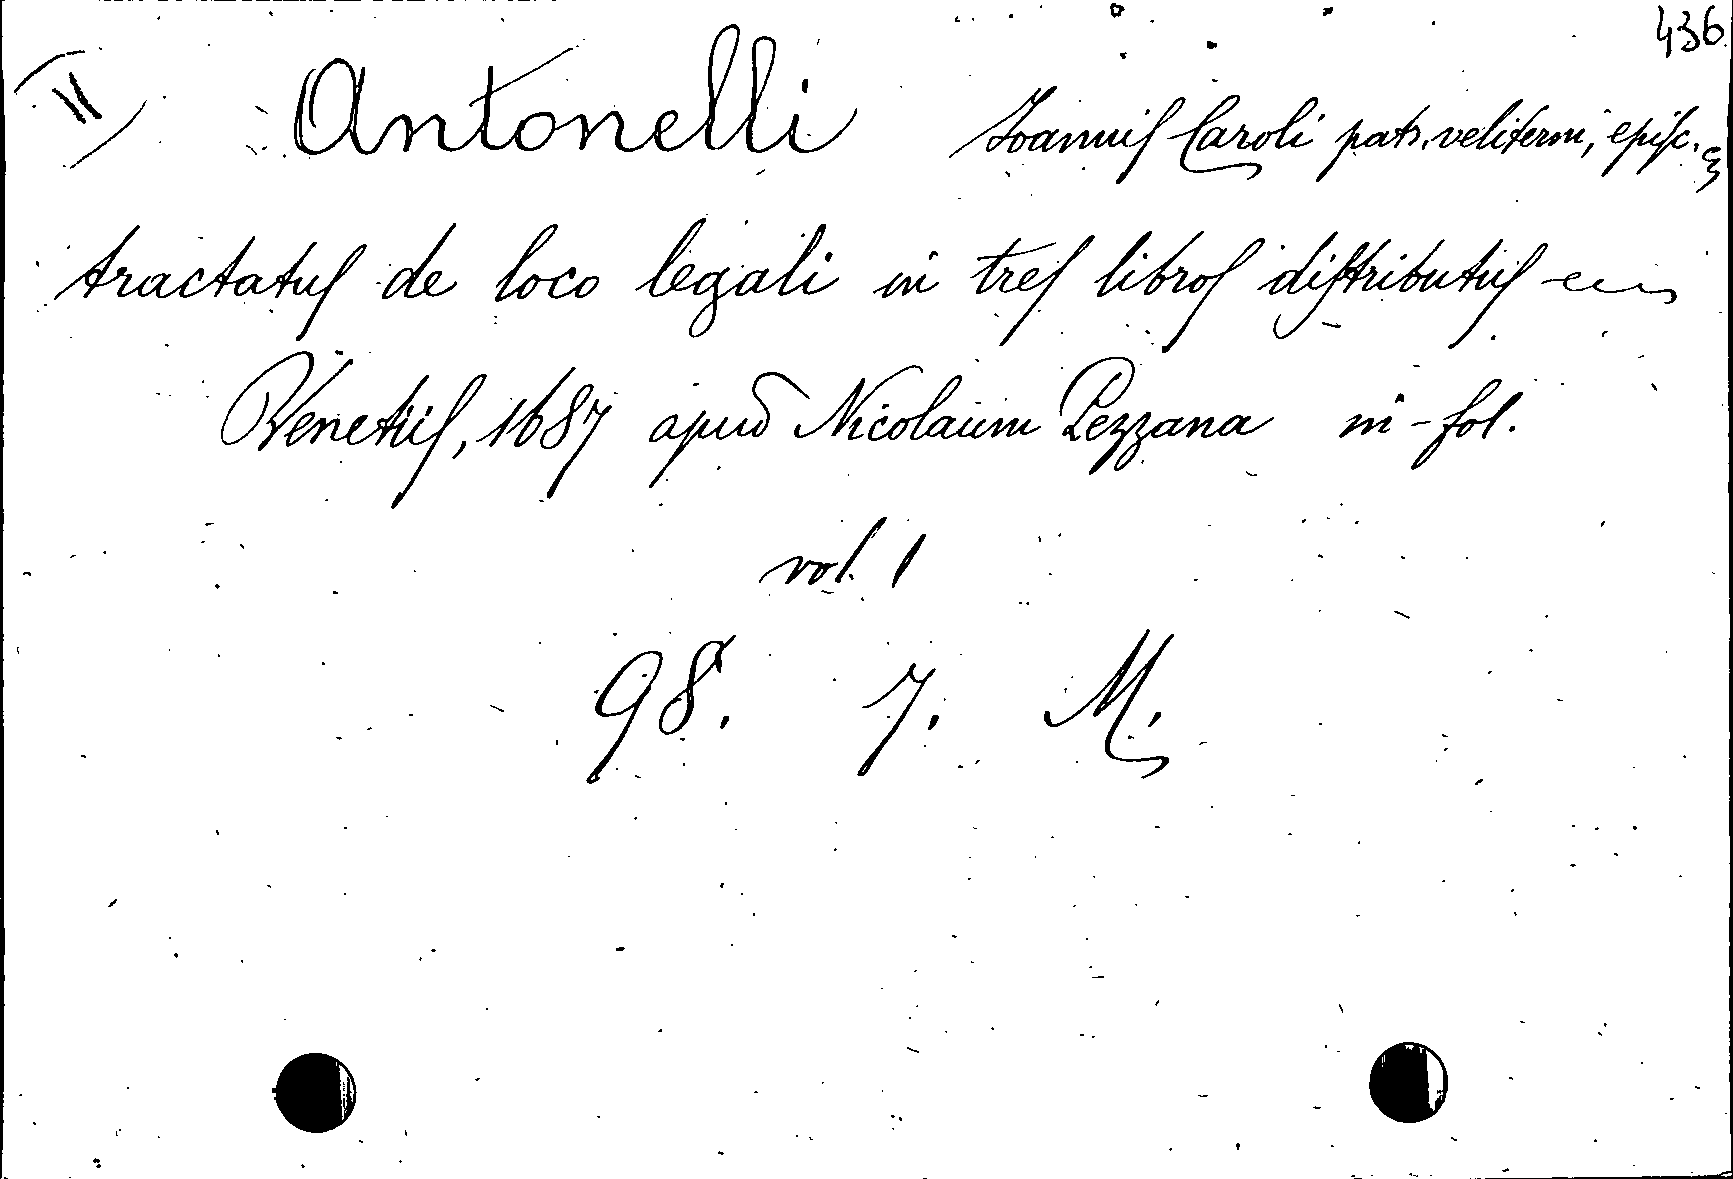 436
II Antonelli Joannis Caroli patr. veliterni, episc.
tractatus de loco legali in tres libros distributus
Venetiis, 1687 apud Nicolaum Pezzana in-fol.
vol. 1
98. 7. M.